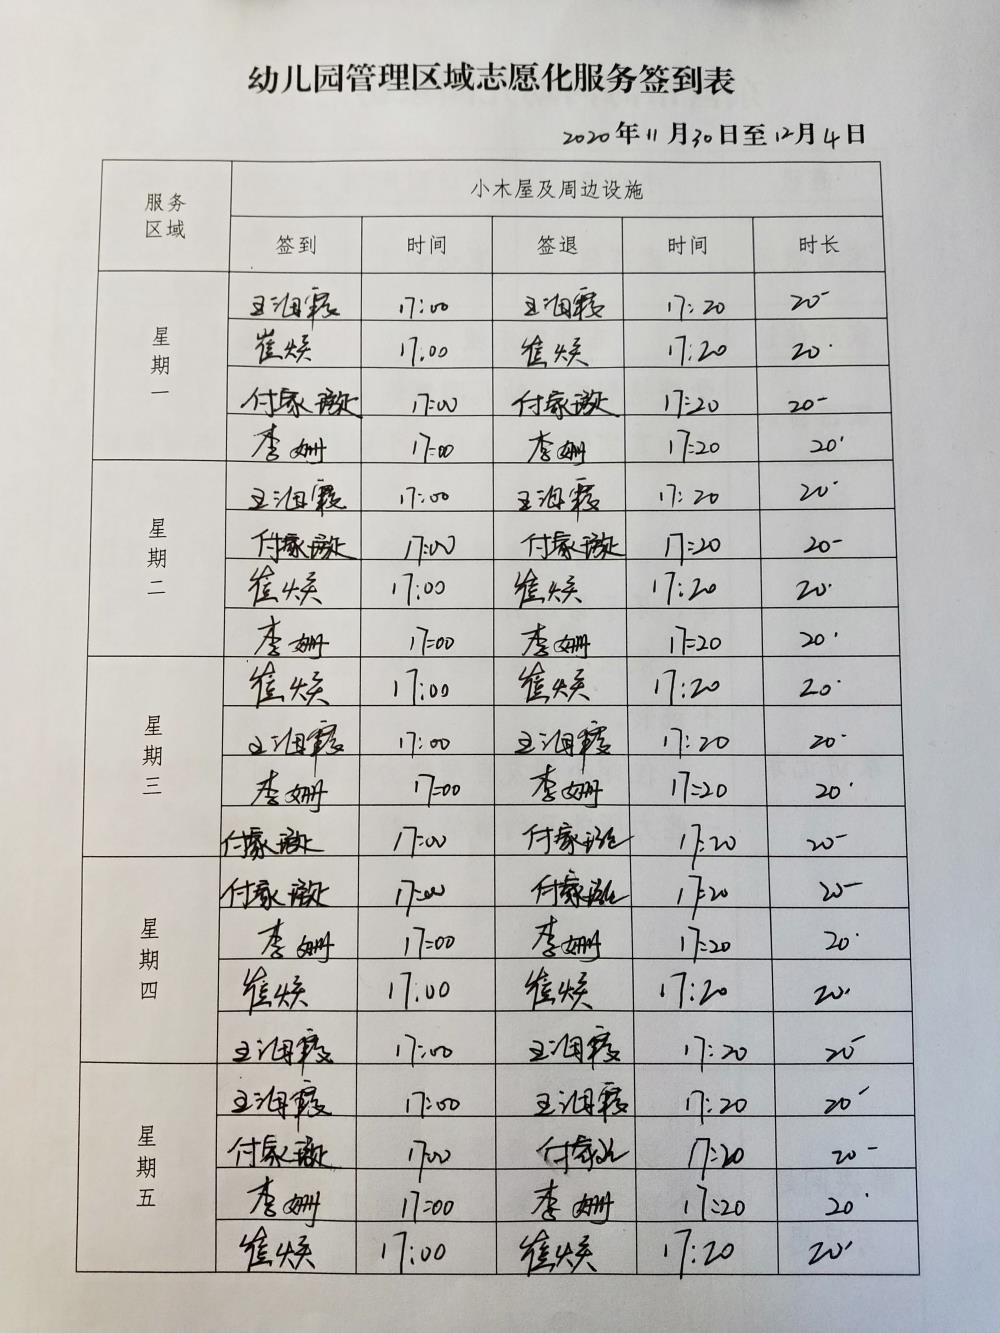 幼儿园管理区域志愿化服务签到表
2020年11月30日至12月4日
服务区域 小木屋及周边设施
签到 时间 签退 时间 时长
星期一
王海霞 17:00 王海霞 17:20 20'
崔焕 17:00 崔焕 17:20 20'
付家 17:00 付家 17:20 20'
李姗 17:00 李姗 17:20 20'
星期二
王海霞 17:00 王海霞 17:20 20'
付家 17:00 付家 17:20 20'
崔焕 17:00 崔焕 17:20 20'
李姗 17:00 李姗 17:20 20'
星期三
崔焕 17:00 崔焕 17:20 20'
王海霞 17:00 王海霞 17:20 20'
李姗 17:00 李姗 17:20 20'
付家 17:00 付家 17:20 20'
星期四
付家 17:00 付家 17:20 20'
李姗 17:00 李姗 17:20 20'
崔焕 17:00 崔焕 17:20 20'
王海霞 17:00 王海霞 17:20 20'
星期五
王海霞 17:00 王海霞 17:20 20'
付家 17:00 付家 17:20 20'
李姗 17:00 李姗 17:20 20'
崔焕 17:00 崔焕 17:20 20'